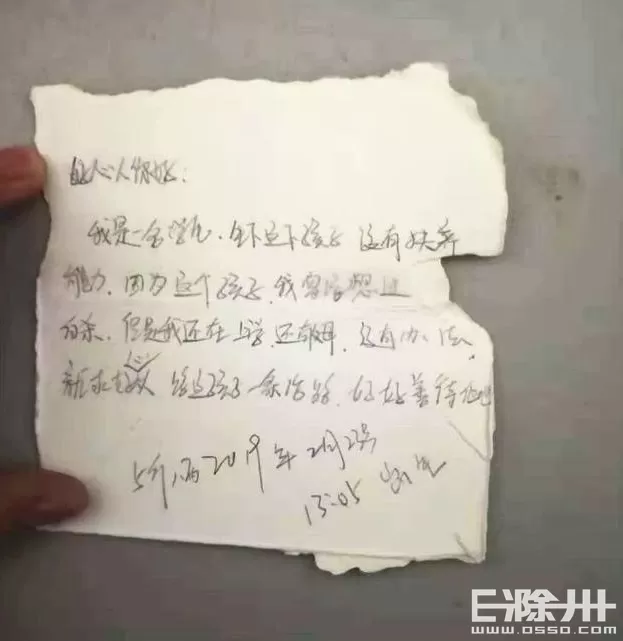 好心人你好:
我是一名学生.生下这个孩子 没有扶养
能力.因为这个孩子.我曾经想过
自杀.但是我还在上学.还有父母.没有办法.
求好心人 给这孩子一条活路.好好善待他吧
5斤八两 2019年2月2号
13:05 出生
E滁州
www.0550.com